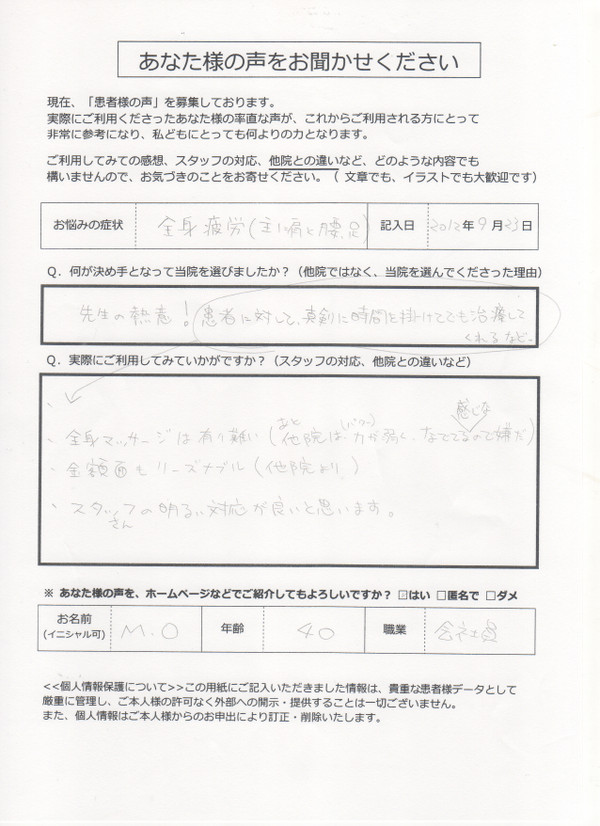 あなた様の声をお聞かせください
現在、「患者様の声」を募集しております。
実際にご利用くださったあなた様の率直な声が、これからご利用される方にとって
非常に参考になり、私どもにとっても何よりの力となります。
ご利用してみての感想、スタッフの対応、他院との違いなど、どのような内容でも
構いませんので、お気づきのことをお寄せください。（ 文章でも、イラストでも大歓迎です）
お悩みの症状 全身疲労(主に肩と腰、足) 記入日 2012年9月23日
Q．何が決め手となって当院を選びましたか？（他院ではなく、当院を選んでくださった理由）
先生の熱意！患者に対して、真剣に時間を掛けてでも治療して
くれるなど
Q．実際にご利用してみていかがですか？（スタッフの対応、他院との違いなど）
・
感じな
・全身マッサージは有り難い(あと他院は力(パワー)が弱く、なでてるので嫌だ)
・金額面もリーズナブル(他院より)
・スタッフさんの明るい対応が良いと思います。
※ あなた様の声を、ホームページなどでご紹介してもよろしいですか？ ☑はい □匿名で □ダメ
お名前 (イニシャル可) M.O 年齢 40 職業 会社員
<<個人情報保護について>>この用紙にご記入いただきました情報は、貴重な患者様データとして
厳重に管理し、ご本人様の許可なく外部への開示・提供することは一切ございません。
また、個人情報はご本人様からのお申出により訂正・削除いたします。